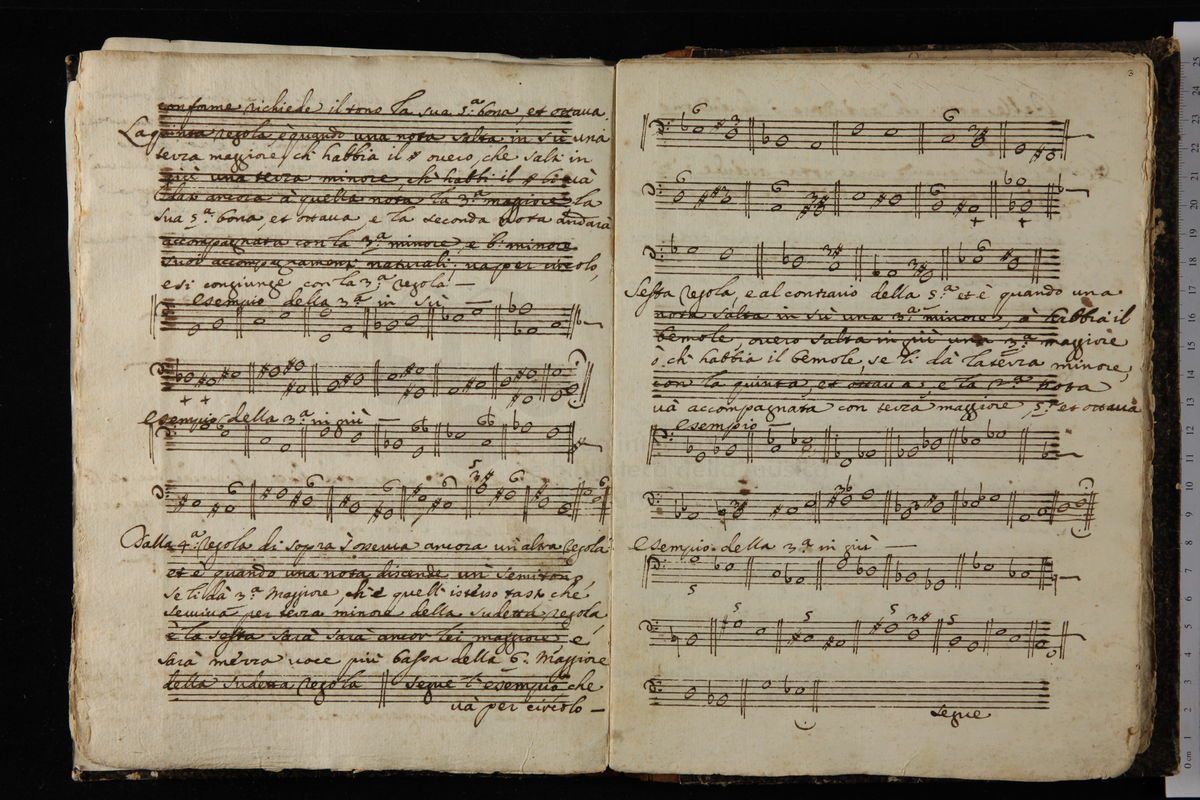 conforme richiede il tono la sua 5.ª bona, et ottava
La quinta regola, è quando una nota salta in sù una
terza maggiore, ch'habbia il # overo, che salti in
giù una terza minore, ch'habbi il # li và
data ancora à quella nota la 3.ª maggiore la
sua 5.ª bona, et ottava e la seconda nota andarà
accompagnata con la 3.ª minore, e
suoi accompagnamenti naturali; và per circolo,
e si congiunge con la 3.ª regola —
esempio della 3.ª in sù —
esempio della 3.ª in giù —
Dalla 4.ª regola di sopra s'osserva ancora un'altra regola
et è quando una nota discende un semitono,
se li dà 3.ª maggiore, ch'è quell'istesso tasto che
serviva per terza minore della sudetta regola,
è la sesta sarà sarà ancor lei maggiore e
sarà mezza voce più bassa della 6.ª maggiore
della sudetta regola segue l'esempio che
và per circolo —
3
Sesta regola, e al contrario della 5.ª et è quando una
nota salta in sù una 3.ª minore, ch'habbia il
bemole, overo salta in giù una 3.ª maggiore
ch'habbia il bemole, se li dà la terza minore,
con la quinta, et ottava, e la 2.ª nota
và accompagnata con terza maggiore, 5.ª et ottava
esempio —
esempio della 3.ª in giù —
segue